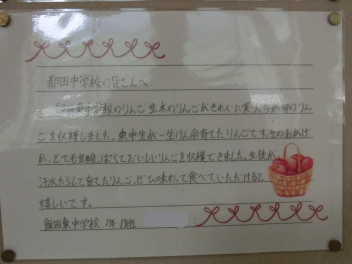 都田中学校の皆さんへ
飯田東中学校のりんご並木のりんごがきれいに実り、今年のりん
ごを収穫しました。東中生が一生けん命育てたりんごです。そのおかげ
か、とても甘酸っぱくておいしいりんごを収穫できました。生徒が
汗水たらして育てたりんご、ぜひ味わって食べていただけると
嬉しいです。
飯田東中学校 1年